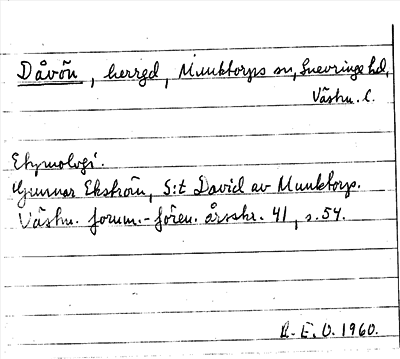 Dåvön, herrgd, Munktorps sn, Snevringe hd,
Västm. l.
Etymologi.
Gunnar Ekström, S:t David av Munktorp.
Västm. fornm.-fören. årsskr. 41, s. 54.
R. E. O. 1960.